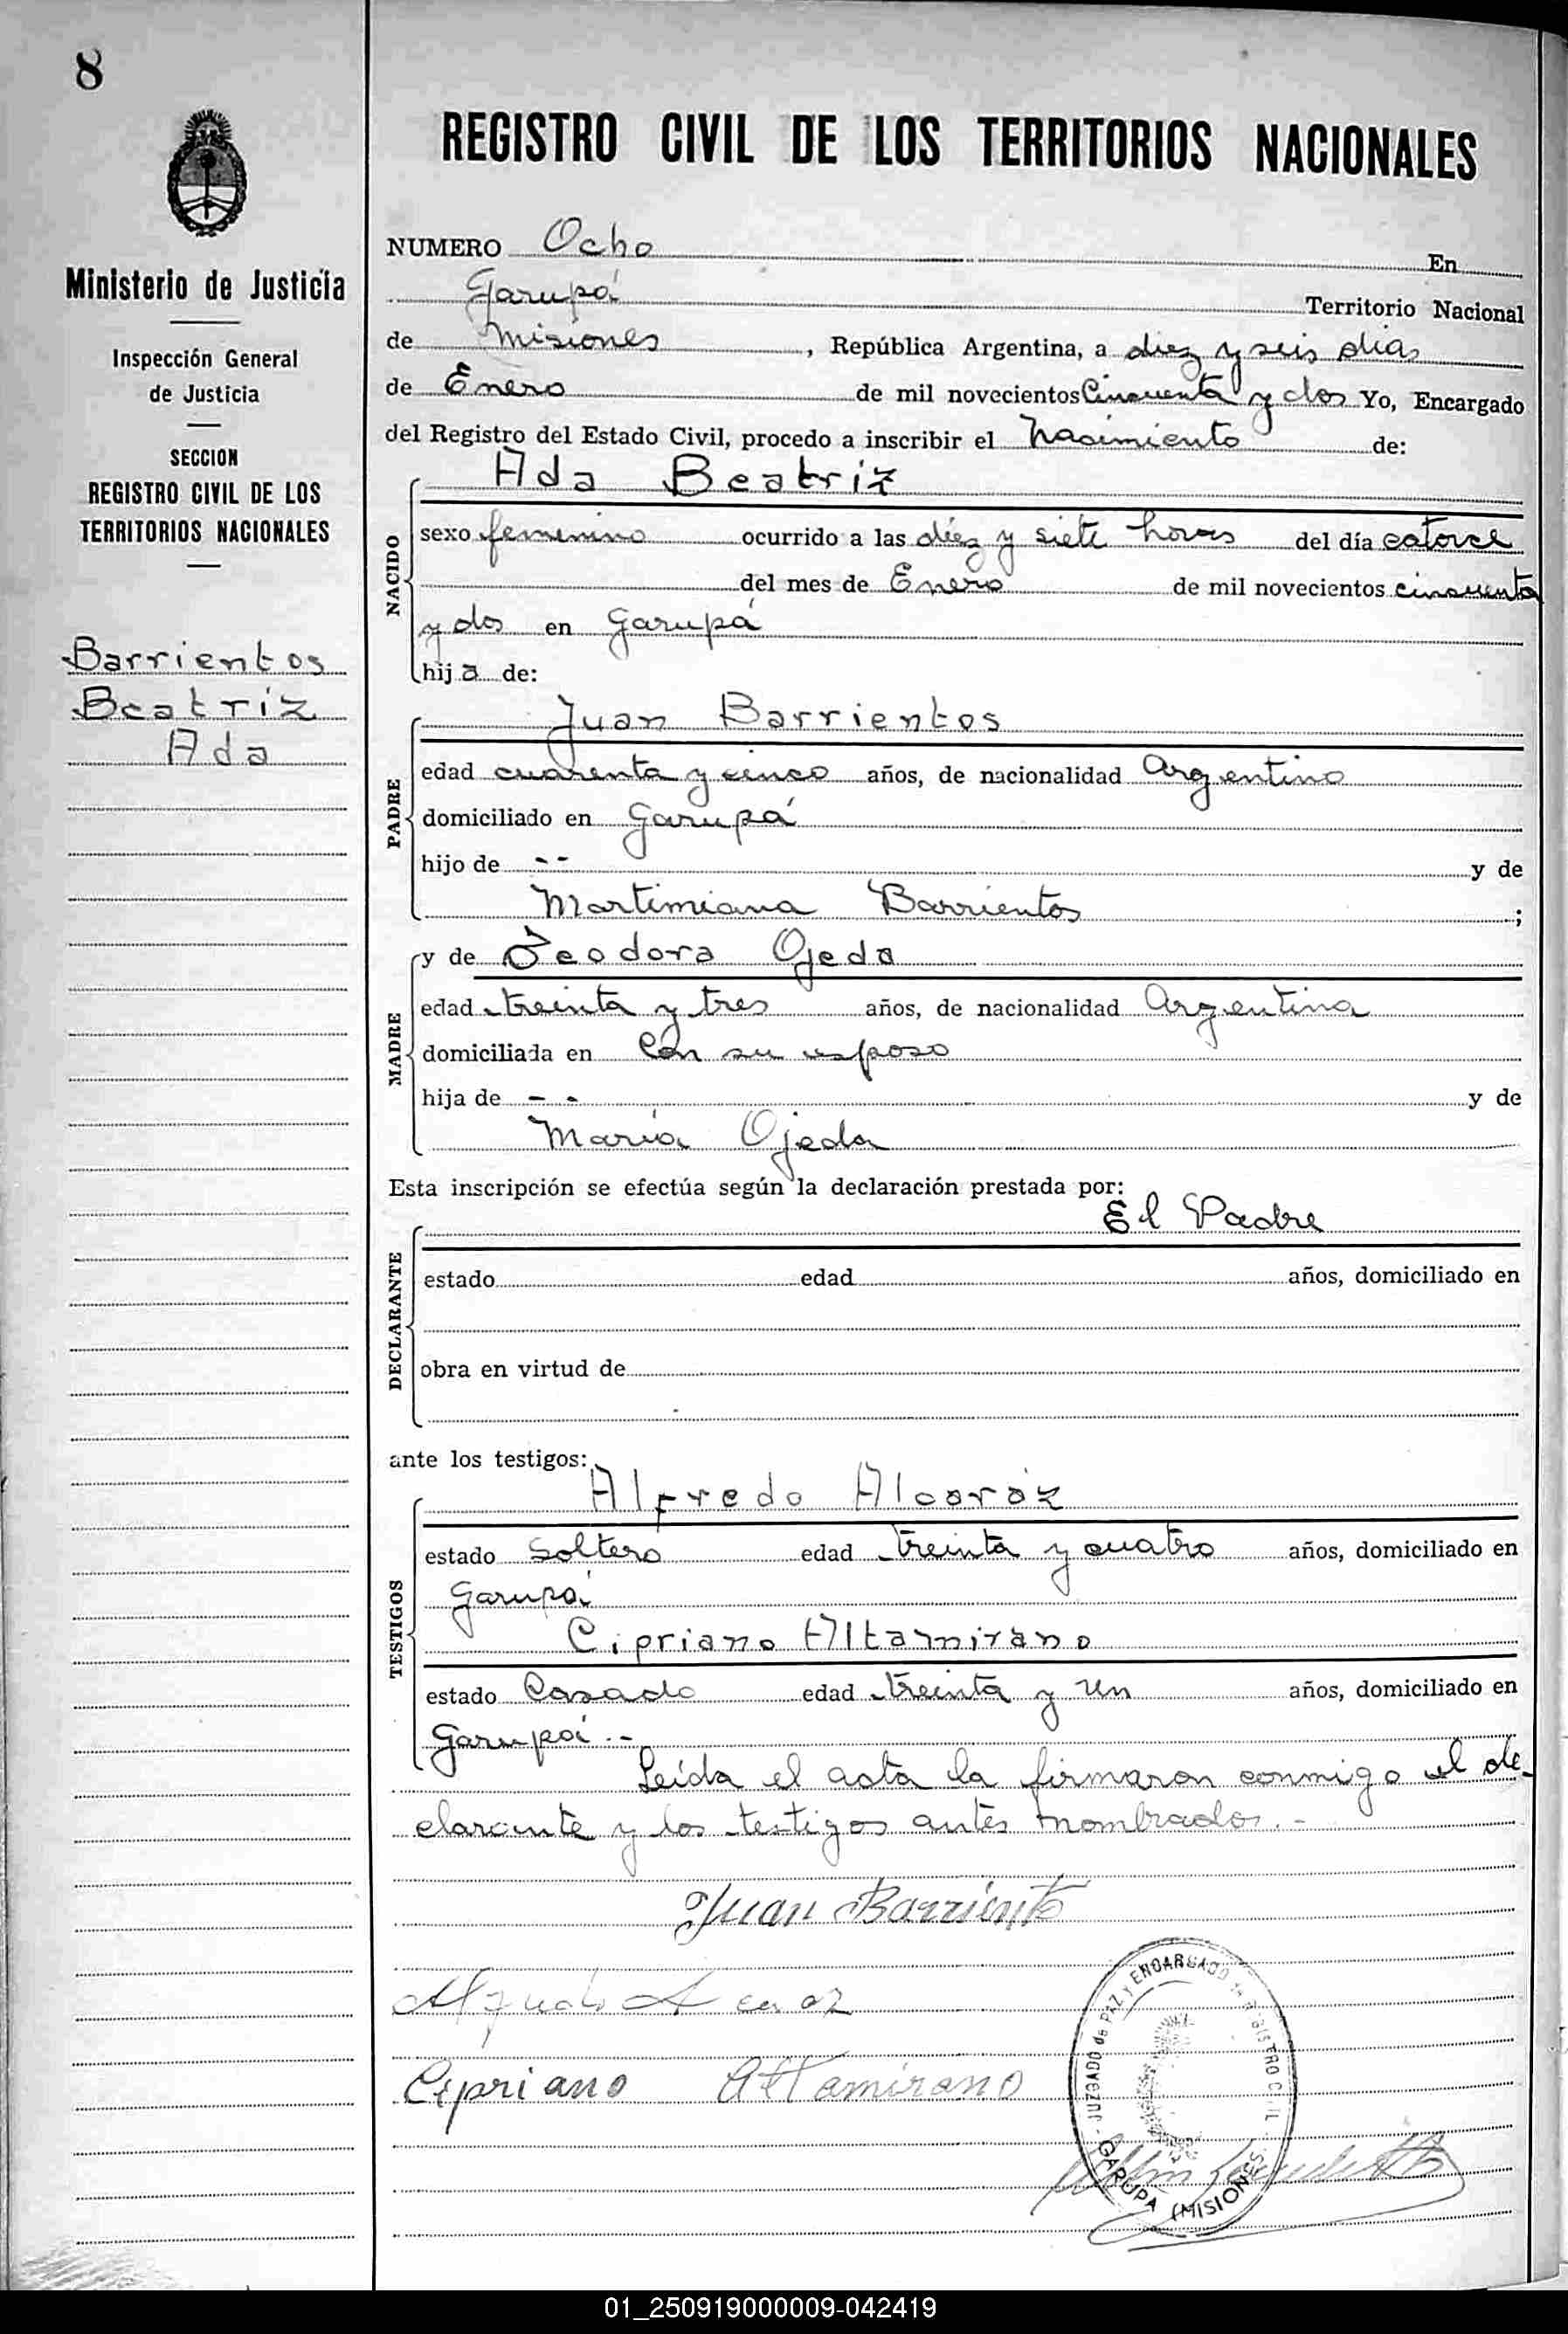 8
Ministerio de Justicia
Inspección General
de Justicia
SECCION
REGISTRO CIVIL DE LOS
TERRITORIOS NACIONALES
Barrientos
Beatriz
Ada
REGISTRO CIVIL DE LOS TERRITORIOS NACIONALES
NUMERO Ocho En
Garupá Territorio Nacional
de Misiones, República Argentina, a diez y seis dias
de Enero de mil novecientos Cincuenta y dos Yo, Encargado
del Registro del Estado Civil, procedo a inscribir el Nacimiento de:
NACIDO
Ada Beatriz
sexo femenino ocurrido a las diez y siete horas del día catorce
del mes de Enero de mil novecientos cincuenta
y dos en Garupá
hija de:
PADRE
Juan Barrientos
edad cuarenta y cinco años, de nacionalidad Argentino
domiciliado en Garupá
hijo de -- y de
Martimiana Barrientos ;
MADRE
y de Teodora Ojeda
edad treinta y tres años, de nacionalidad Argentina
domiciliada en Con su esposo
hija de - - y de
María Ojeda
Esta inscripción se efectúa según la declaración prestada por:
DECLARANTE
El Padre
estado edad años, domiciliado en
obra en virtud de
ante los testigos:
TESTIGOS
Alfredo Alcaráz
estado Soltero edad treinta y cuatro años, domiciliado en
Garupá
Cipriano Altamirano
estado Casado edad treinta y un años, domiciliado en
Garupá.-
Leída el acta la firmaron conmigo el de-
clarante y los testigos antes nombrados.-
Juan Barriento
Cipriano Altamirano
JUZGADO de PAZ y ENCARGADO REGISTRO CIVIL
GARUPA (MISIONES)
01_250919000009-042419